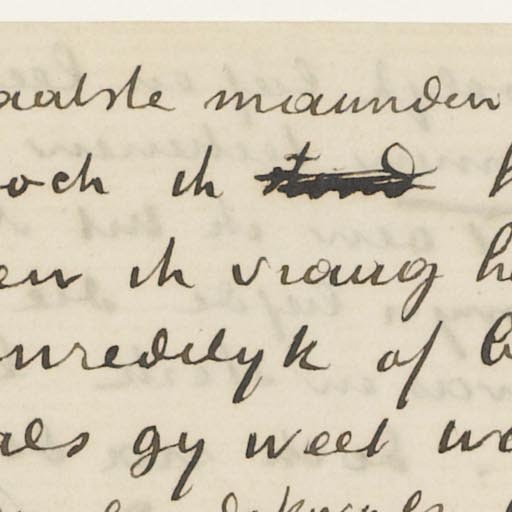 aatste maanden
och ik stond
en ik vraag h
nredelyk of
als gy weet wa